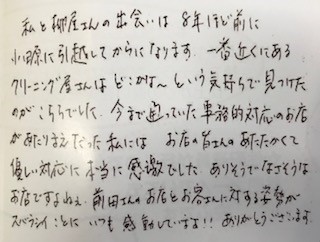 私と柳屋さんの出会いは8年ほど前に
小原に引越してからになります。一番近くにある
クリーニング屋さんはどこかな〜という気持ちで見つけた
のがこちらでした。今まで通っていた事務的対応のお店
があたりまえだった私には お店の皆さんのあたたかくて
優しい対応に本当に感激でした。ありそうでなさそうな
お店ですよねぇ。前田さんのお店とお客さんに対する姿勢が
スバラシイことにいつも感動していますよ!! ありがとうございます。